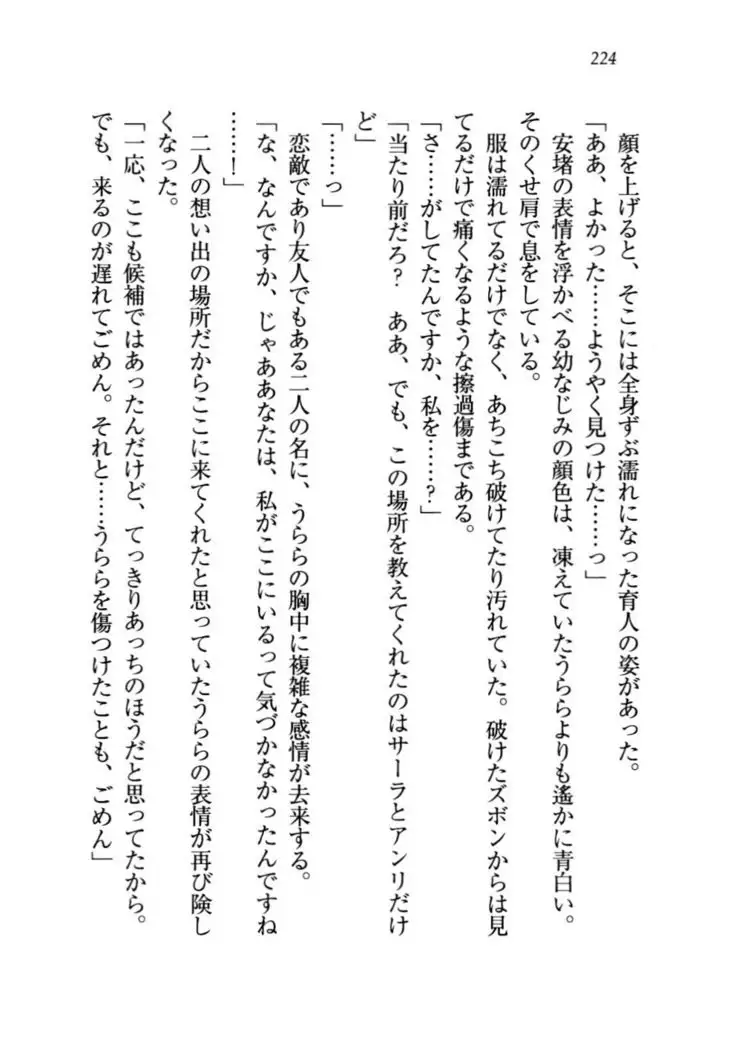 224
顔を上げると、そこには全身ずぶ濡れになった育人の姿があった。
「ああ、よかった……ようやく見つけた……っ」
安堵の表情を浮かべる幼なじみの顔色は、凍えていたうららよりも遙かに青白い。
そのくせ肩で息をしている。
服は濡れてるだけでなく、あちこち破けてたり汚れていた。破けたズボンからは見
てるだけで痛くなるような擦過傷まである。
「さ……がしてたんですか、私を……?」
「当たり前だろ? ああ、でも、この場所を教えてくれたのはサーラとアンリだけ
ど」
「……っ」
恋敵であり友人でもある二人の名に、うららの胸中に複雑な感情が去来する。
「な、なんですか、じゃああなたは、私がここにいるって気づかなかったんですね
……!」
二人の想い出の場所だからここに来てくれたと思っていたうららの表情が再び険し
くなった。
「一応、ここも候補ではあったんだけど、てっきりあっちのほうだと思ってたから。
でも、来るのが遅れてごめん。それと……うららを傷つけたことも、ごめん」